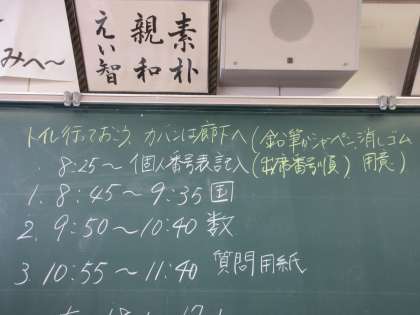 みへ～
素朴
親和
えい智
トイレ行っておこう、カバンは廊下へ(鉛筆かシャーペン、消しゴム
8:25～ 個人番号表記入(出席番号順) 用意)
1. 8:45～9:35 国
2. 9:50～10:40 数
3. 10:55～11:40 質問用紙